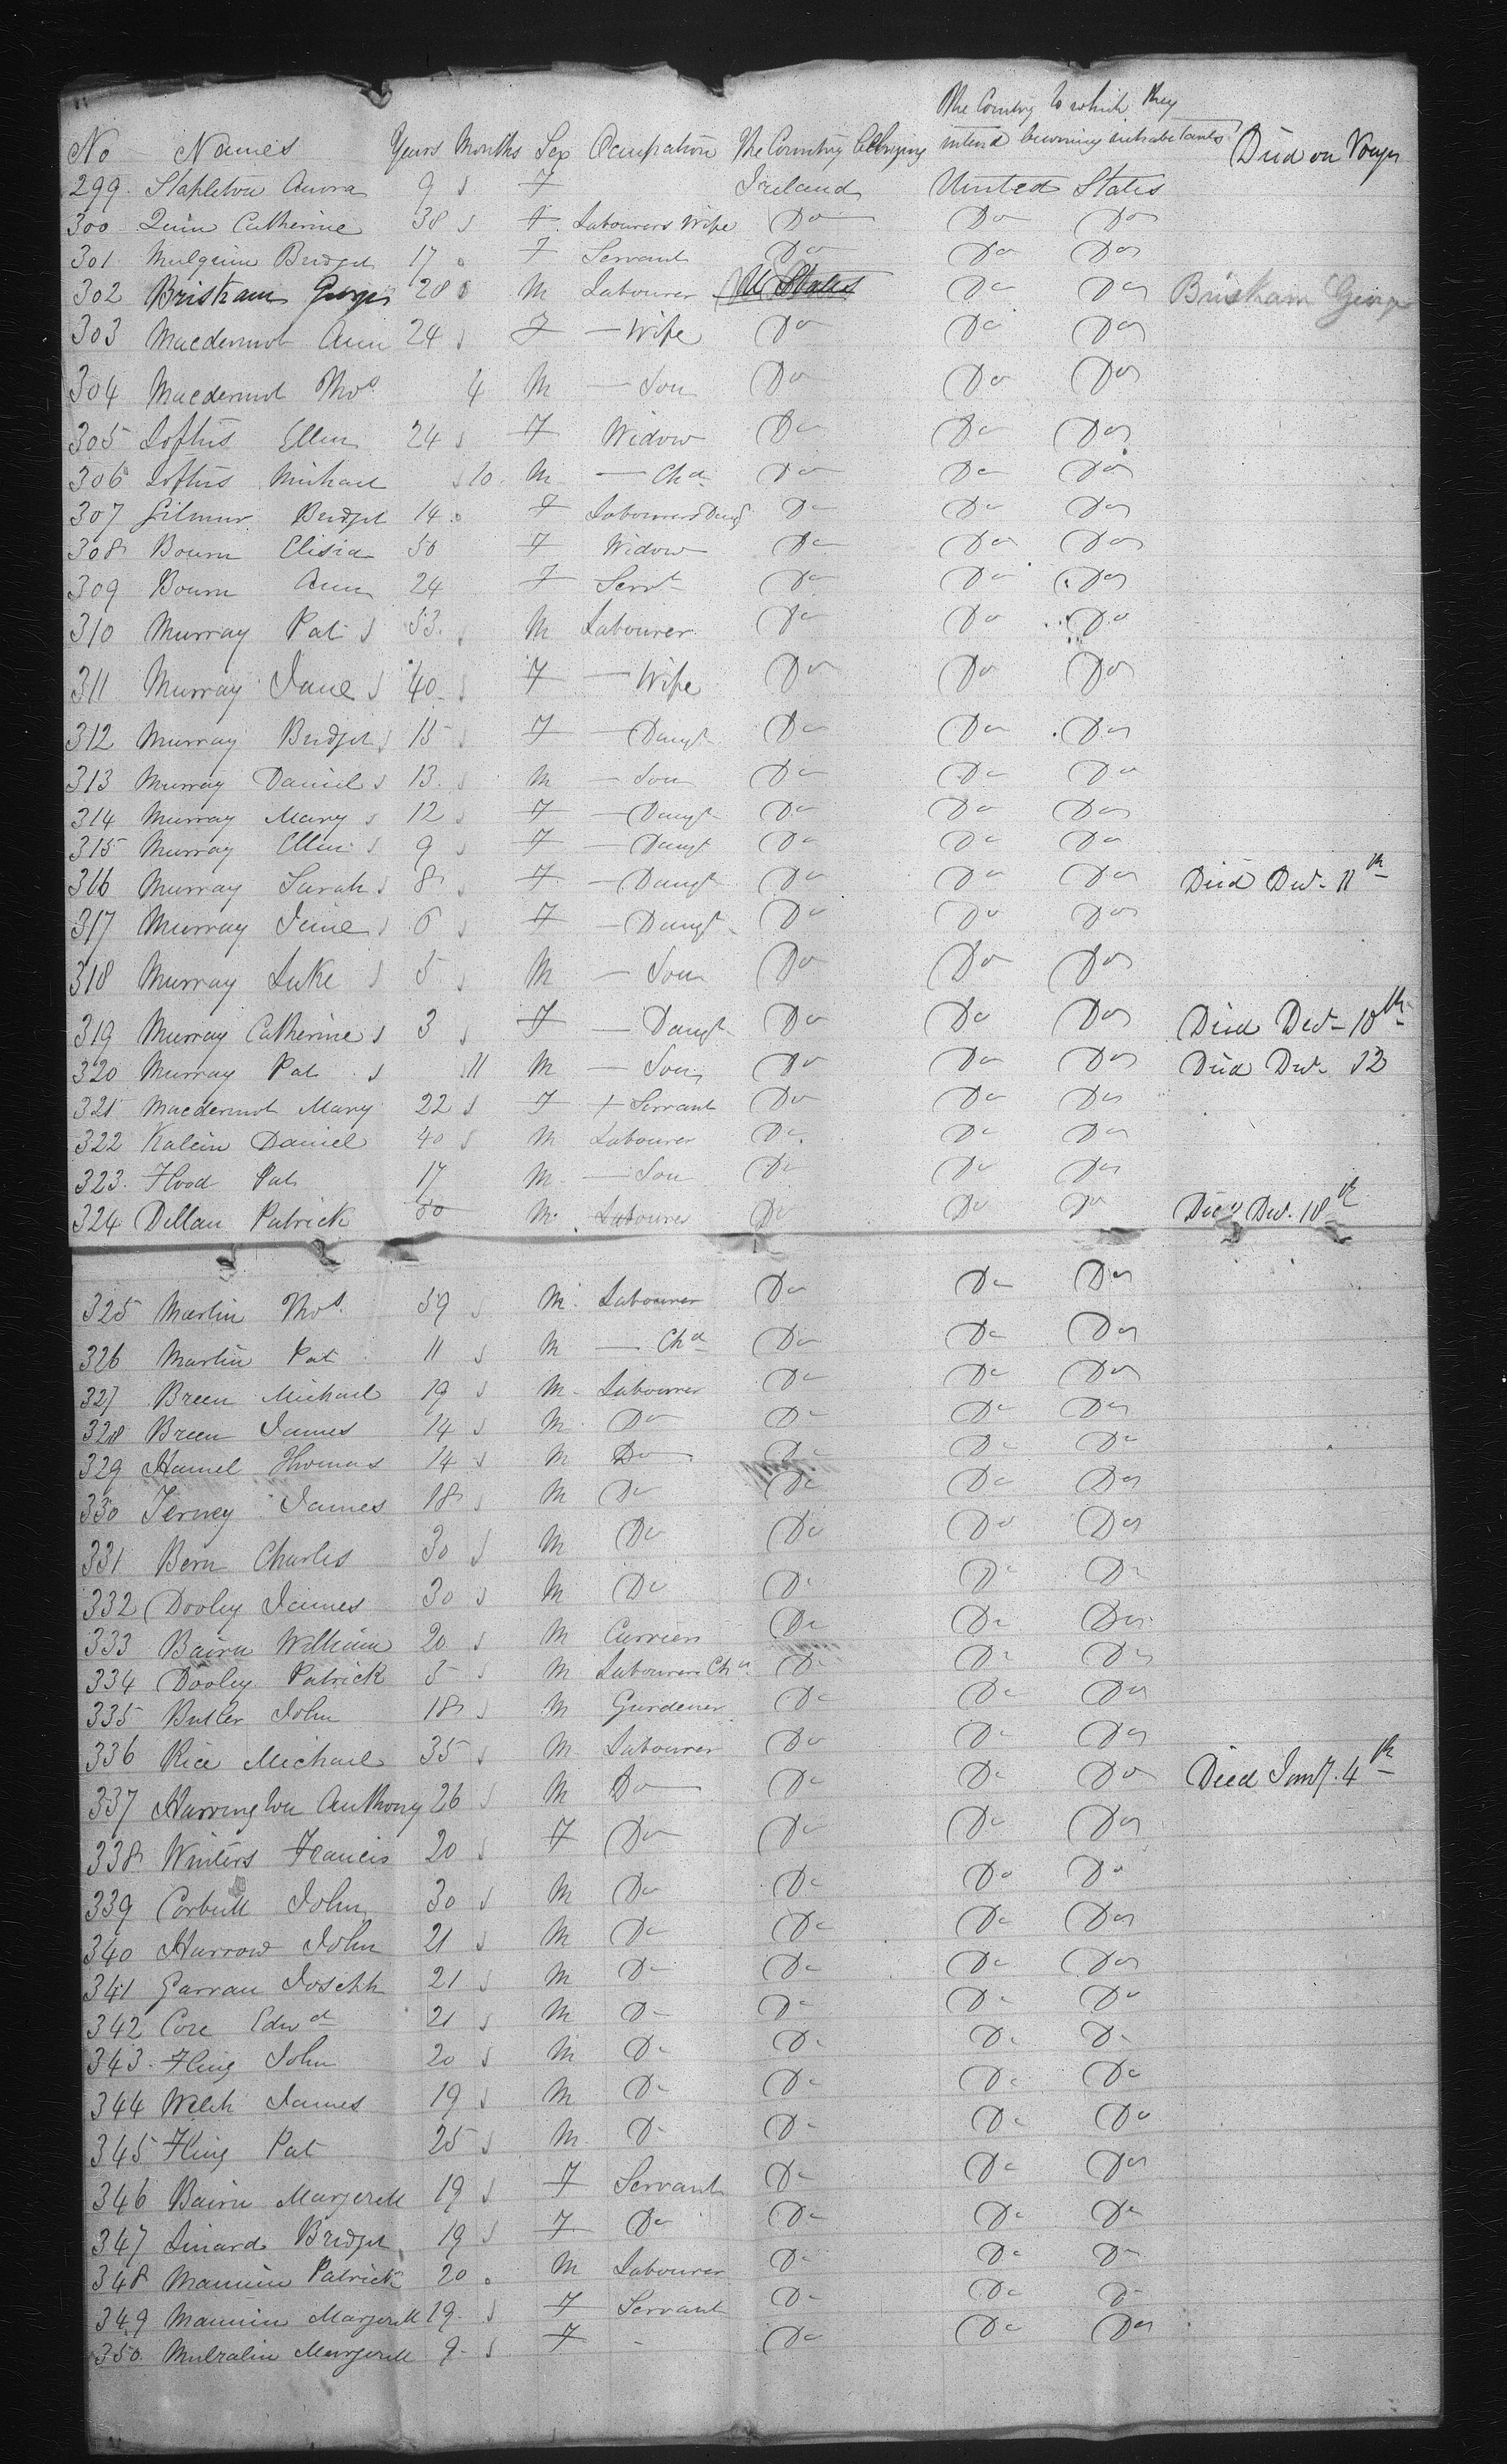 The Country to which they
No Names Years Months Sex Occupation The Country belonging intend becoming inhabitants Died on Voyge
299. Stapleton Anora 9 F Ireland United States
300 Quin Catherine 38 F. Labourers Wife Do Do Do
301 Mulquin Bridget 17 F Servant Do Do Do
302 Brisham George 28 M Labourer U States Do Do Brisham George
303 Macdermot Ann 24 F — Wife Do Do Do
304 Macdermot Thos 4 M — Son Do Do Do
305 Loftus Ellen 24 F Widow Do Do Do
306 Loftus Michael 10. M — Chd Do Do Do
307 Gilmur Bridget 14 F Labourers Daug Do Do Do
308 Bourn Elisia 50 F Widow Do Do Do
309 Bourn Ann 24 F Servt Do Do Do
310 Murray Pat 53. M Labourer Do Do Do
311 Murray Jane 40 F — Wife Do Do Do
312 Murray Bridget 15 F — Daugt Do Do Do
313 Murray Daniel 13. M — Son Do Do Do
314 Murray Mary 12 F — Daugt Do Do Do
315 Murray Ellen 9 F — Daugt Do Do Do
316 Murray Sarah 8 F — Daugt Do Do Do Died Dec. 11th
317 Murray Jane 6 F — Daugt Do Do Do
318 Murray Luke 5 M — Son Do Do Do
319 Murray Catherine 3 F — Daugt Do Do Do Died Dec. 10th
320 Murray Pat 11 M — Son Do Do Do Died Dec. 12
321 Macdermot Mary 22 F + Servant Do Do Do
322 Kalein Daniel 40 M Labourer Do Do Do
323. Flood Pat 17 M — Son Do Do Do
324 Dillan Patrick 50 M. Labourer Do Do Do Died Dec. 18th
325 Martin Thos. 59 M. Labourer Do Do Do
326 Martin Pat 11 M — Chd Do Do Do
327 Breen Michael 19 M. Labourer Do Do Do
328 Breen James 14 M. Do Do Do Do
329 Hamel Thomas 14 M Do Do Do Do
330 Terney James 18 M Do Do Do Do
331 Bern Charles 30 M Do Do Do Do
332 Dooley James 30 M Do Do Do Do
333 Bairn William 20 M Curriers Do Do Do
334 Dooley Patrick 5 M Labourers Chd Do Do Do
335 Butler John 18 M Gardener Do Do Do
336 Rice Michael 35 M Labourer Do Do Do
337 Harrington Anthony 26 M Do Do Do Do Died Jany. 4th
338 Winters Francis 20 F Do Do Do Do
339 Corbutt John 30 M Do Do Do Do
340 Harrow John 21 M Do Do Do Do
341 Garran Joseph 21 M Do Do Do Do
342 Core Edwd 21 M Do Do Do Do
343. Fling John 20 M Do Do Do Do
344 Welch James 19 M Do Do Do Do
345 Fling Pat 25 M Do Do Do Do
346 Bairn Margerett 19 F Servant Do Do Do
347 Linard Bridget 19 F Do Do Do Do
348 Mannin Patrick 20 M Labourer Do Do Do
349 Mannin Margerett 19. F Servant Do Do Do
350. Mulralin Margerett 9 F - Do Do Do